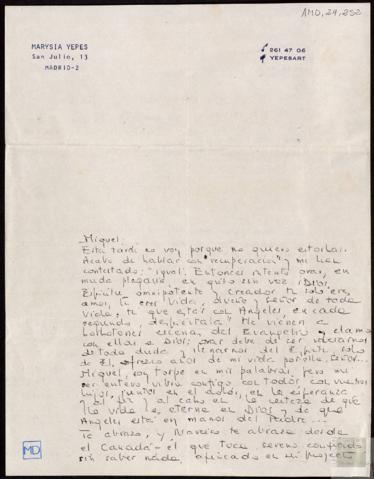 AMD,24,252
MARYSIA YEPES
San Julio, 13
MADRID-2
261 47 06
YEPESART
Miguel:
Esta tarde no voy porque no quiero estorbar.
Acabo de hablar con "recuperación" y me han
contestado: "igual". Entonces intento orar, en
muda plegaria, en grito sin voz: ¡Dios,
Espíritu omnipotente y creador, tú solo eres
amor, tú eres Vida, dueño y Señor de toda
Vida, tú que estás con Angeles, en cada
segundo, ! Me vienen a
borbotones escenas del Evangelio y clamo
con ellas a Dios: orar debe de ser vaciarnos
de toda duda y llenarnos del Espíritu, solo
de El, ofrezco años de mi vida por ella, Dios...
Miguel, soy torpe en mis palabras, pero mi
ser entero vibra contigo con todos con vuestros
hijos, juntos en el dolor, en la esperanza
y al fin y al cabo en la certeza de que
la vida es eterna en Dios y de que
Angeles está en manos del Padre...
Te abrazo, y Narciso te abraza desde
el Canadá - el que toca sereno confiado
sin saber nada, apiñados en mi
MD